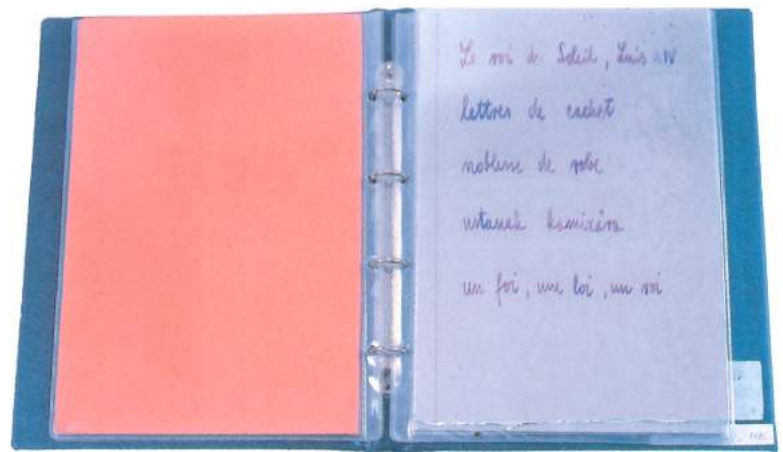 Le roi de Soleil, Luis XIV
lettres de cachet
noblesse de robe
ustanak kamizára
un foi, une loi, un roi